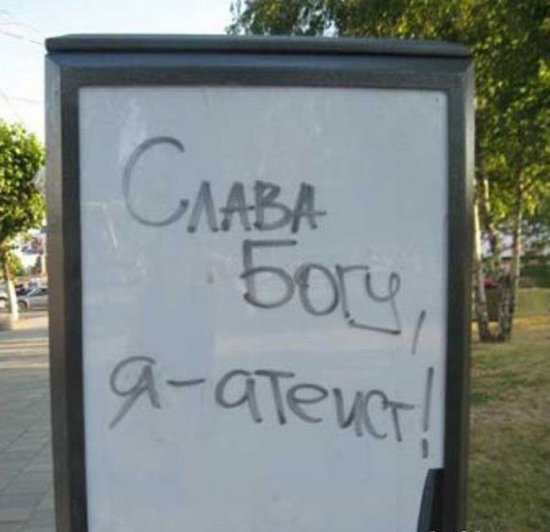 Слава
Богу,
я-атеист!